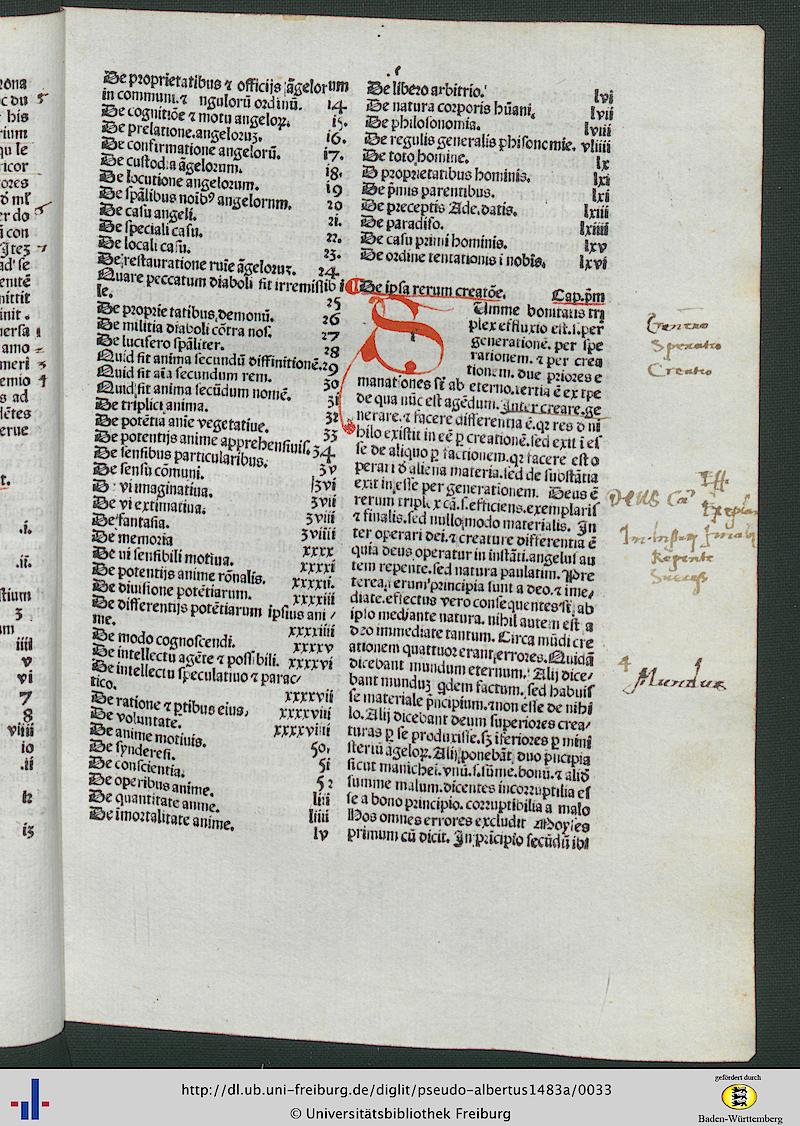 De proprietatibus ⁊ officijs ãgelorum
in communi.⁊ ngulorũ ordinũ. 14.
De cognitiõe ⁊ motu angeloꝝ. 15.
De prelatione.angeloruꝫ. 16.
De confirmatione angelorũ. 17.
De custodia ãgelorum. 18.
De locutione angelorum. 19
De spãlibus noĩbꝰ angelornm. 20
De casu angeli. 21.
De speciali casu. 22.
De locali casu. 23.
De restauratione ruĩe ãgeloruꝫ. 24.
Quare peccatum diaboli sit irremissib i
le. 25
De proprietatibus demonũ. 26
De militia diaboli cõtra nos. 27
De lucifero spãliter. 28
Quid sit anima secundũ diffinitionẽ. 29
Quid sit aĩa secundum rem. 30
Quid sit anima secũdum nomẽ. 31
De triplici anima. 32
De potẽtia anĩe vegetatiue. 33
De potentijs anime apprehensiuis. 34.
De sensibus particularibus. 3v
De sensu cõmuni. 3vi
D vi imaginatiua. 3vii
De vi extimatiua. 3viii
De fantasia. 3viiii
De memoria xxxx
De ui sensibili motiua. xxxxi
De potentijs anime rõnalis. xxxxii.
De diuisione potẽtiarum. xxxxiii
De differentijs potẽtiarum ipsius ani /
me. xxxxiiii
De modo cognoscendi. xxxxv
De intellectu agẽte ⁊ possibili. xxxxvi
De intellectu speculatiuo ⁊ parac/
tico. xxxxvii
De ratione ⁊ ꝑtibus eius, xxxxviii
De voluntate. xxxxviiii
De anime motiuis. 50,
De synderesi. 51
De conscientia. 52
De operibus anime. liii
De quantitate anime. liiii
De imortalitate anime. lv
De libero arbitrio. lvi
De natura corporis hũani. lvii
De philosonomia. lviii
De regulis generalis phisonomie. vliiii
De toto homine. lx
D proprietatibus hominis. lxi
De pmis parentibus. lxi
De preceptis Ade.datis. lxiii
De paradiso. lxiiii
De casu primi hominis. lxv
De ordine tentationis i nobis. lxvi
De ipsa rerum creatõe. Cap.pm
S Umme bonitatis tri
plex effluxio est.s.per
generationẽ. per spe
rationem. ⁊ per crea
tionem. due priores e
manationes st̃ ab eterno.tertia ẽ ex tpe
de qua nũc est agẽdum. Inter creare.ge
nerare. ⁊ facere differentia ẽ.qꝛ res d ni
hilo existit in eẽ ꝑ creationẽ.sed exit i es
se de aliquo ꝑ factionem.qꝛ facere est o
perari d aliena materia.sed de substãtia
exit in esse per generationem. Deus ẽ
rerum triplex cã.s.efficiens.exemplaris
⁊ finalis.sed nullo modo materialis. In
ter operari dei.⁊ creature differentia ẽ
quia deus operatur in instãti.angelus au
tem repente.sed natura paulatim. Pre
terea. erum principia sunt a deo.⁊ ime/
diate.effectus vero consequentes st̃ ab
ipso mediante natura. nihil autem est a
deo immediate tantum. Circa mũdi cre
ationem quattuor erant errores. Quidã
dicebant mundum eternum. Alij dice/
bant munduꝫ qdem factum. sed habuis
se materiale pncipium.⁊non esse de nihi
lo. Alij dicebant deum superiores crea/
turas ꝑ se produxisse.sꝫ ĩferiores ꝑ mini
steriũ ãgeloꝝ. Alij ponebãt duo pncipia
sicut manichei. vnũ.s.sũme.bonũ.⁊ aliđ
summe malum.dicentes incorruptilia es
se a bono principio. corruptibilia a malo
Hos omnes errores excludit Moyses
primum cũ dicit. In pricipio secũdũ ibi
Speratio
Creatio
DEUS
4 Mundus
iiii
v
vi
7
8
viiii
io
.ii
i2
i3
http://dl.ub.uni-freiburg.de/diglit/pseudo-albertus1483a/0033
© Universitätsbibliothek Freiburg
gefördert durch
Baden-Württemberg